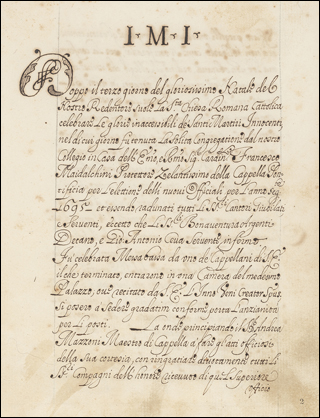 I · M · I ·
Doppo il terzo giorno del gloriosissimo Natale del
Nostro Redentore suole la S.ta Chiesa Romana Cattolica
celebrare le glorie inaccessibili de Santi Martiri Innocenti,
nel di cui giorno fu tenuta la solita Congregatione dal nostro
Collegio in Casa dell' Emo, e Rmo Sig. Card.le Francesco
Maidalchini Protettore Zelantissimo della Cappella Pon-
tificia per l'elettione delli nuovi Officiali per l'anno
1695. et essendo radunati tutti li Cantori Giubilati
e Serventi, eccetto che li Bonaventura Argenti
Decano, e Pio Antonio Ceva Servente, infermo
Fu celebrata Messa bassa da uno de Cappellani di S. E.
il che terminato, entrarono in una Camera del medesimo
Palazzo, ove recitato da S. E. l'Inno Veni Creator Spus
si posero a sedere gradatim conforme porta l'anzianità
per li posti. La onde principiando il Sr Andrea
Mazzoni Maestro di Cappella à fare gl'atti ossequiosi
della sua cortesia, con ringratiare divotamente tutti li
Sri Compagni dell' honore ricevuto di questo Superiore
officio
2